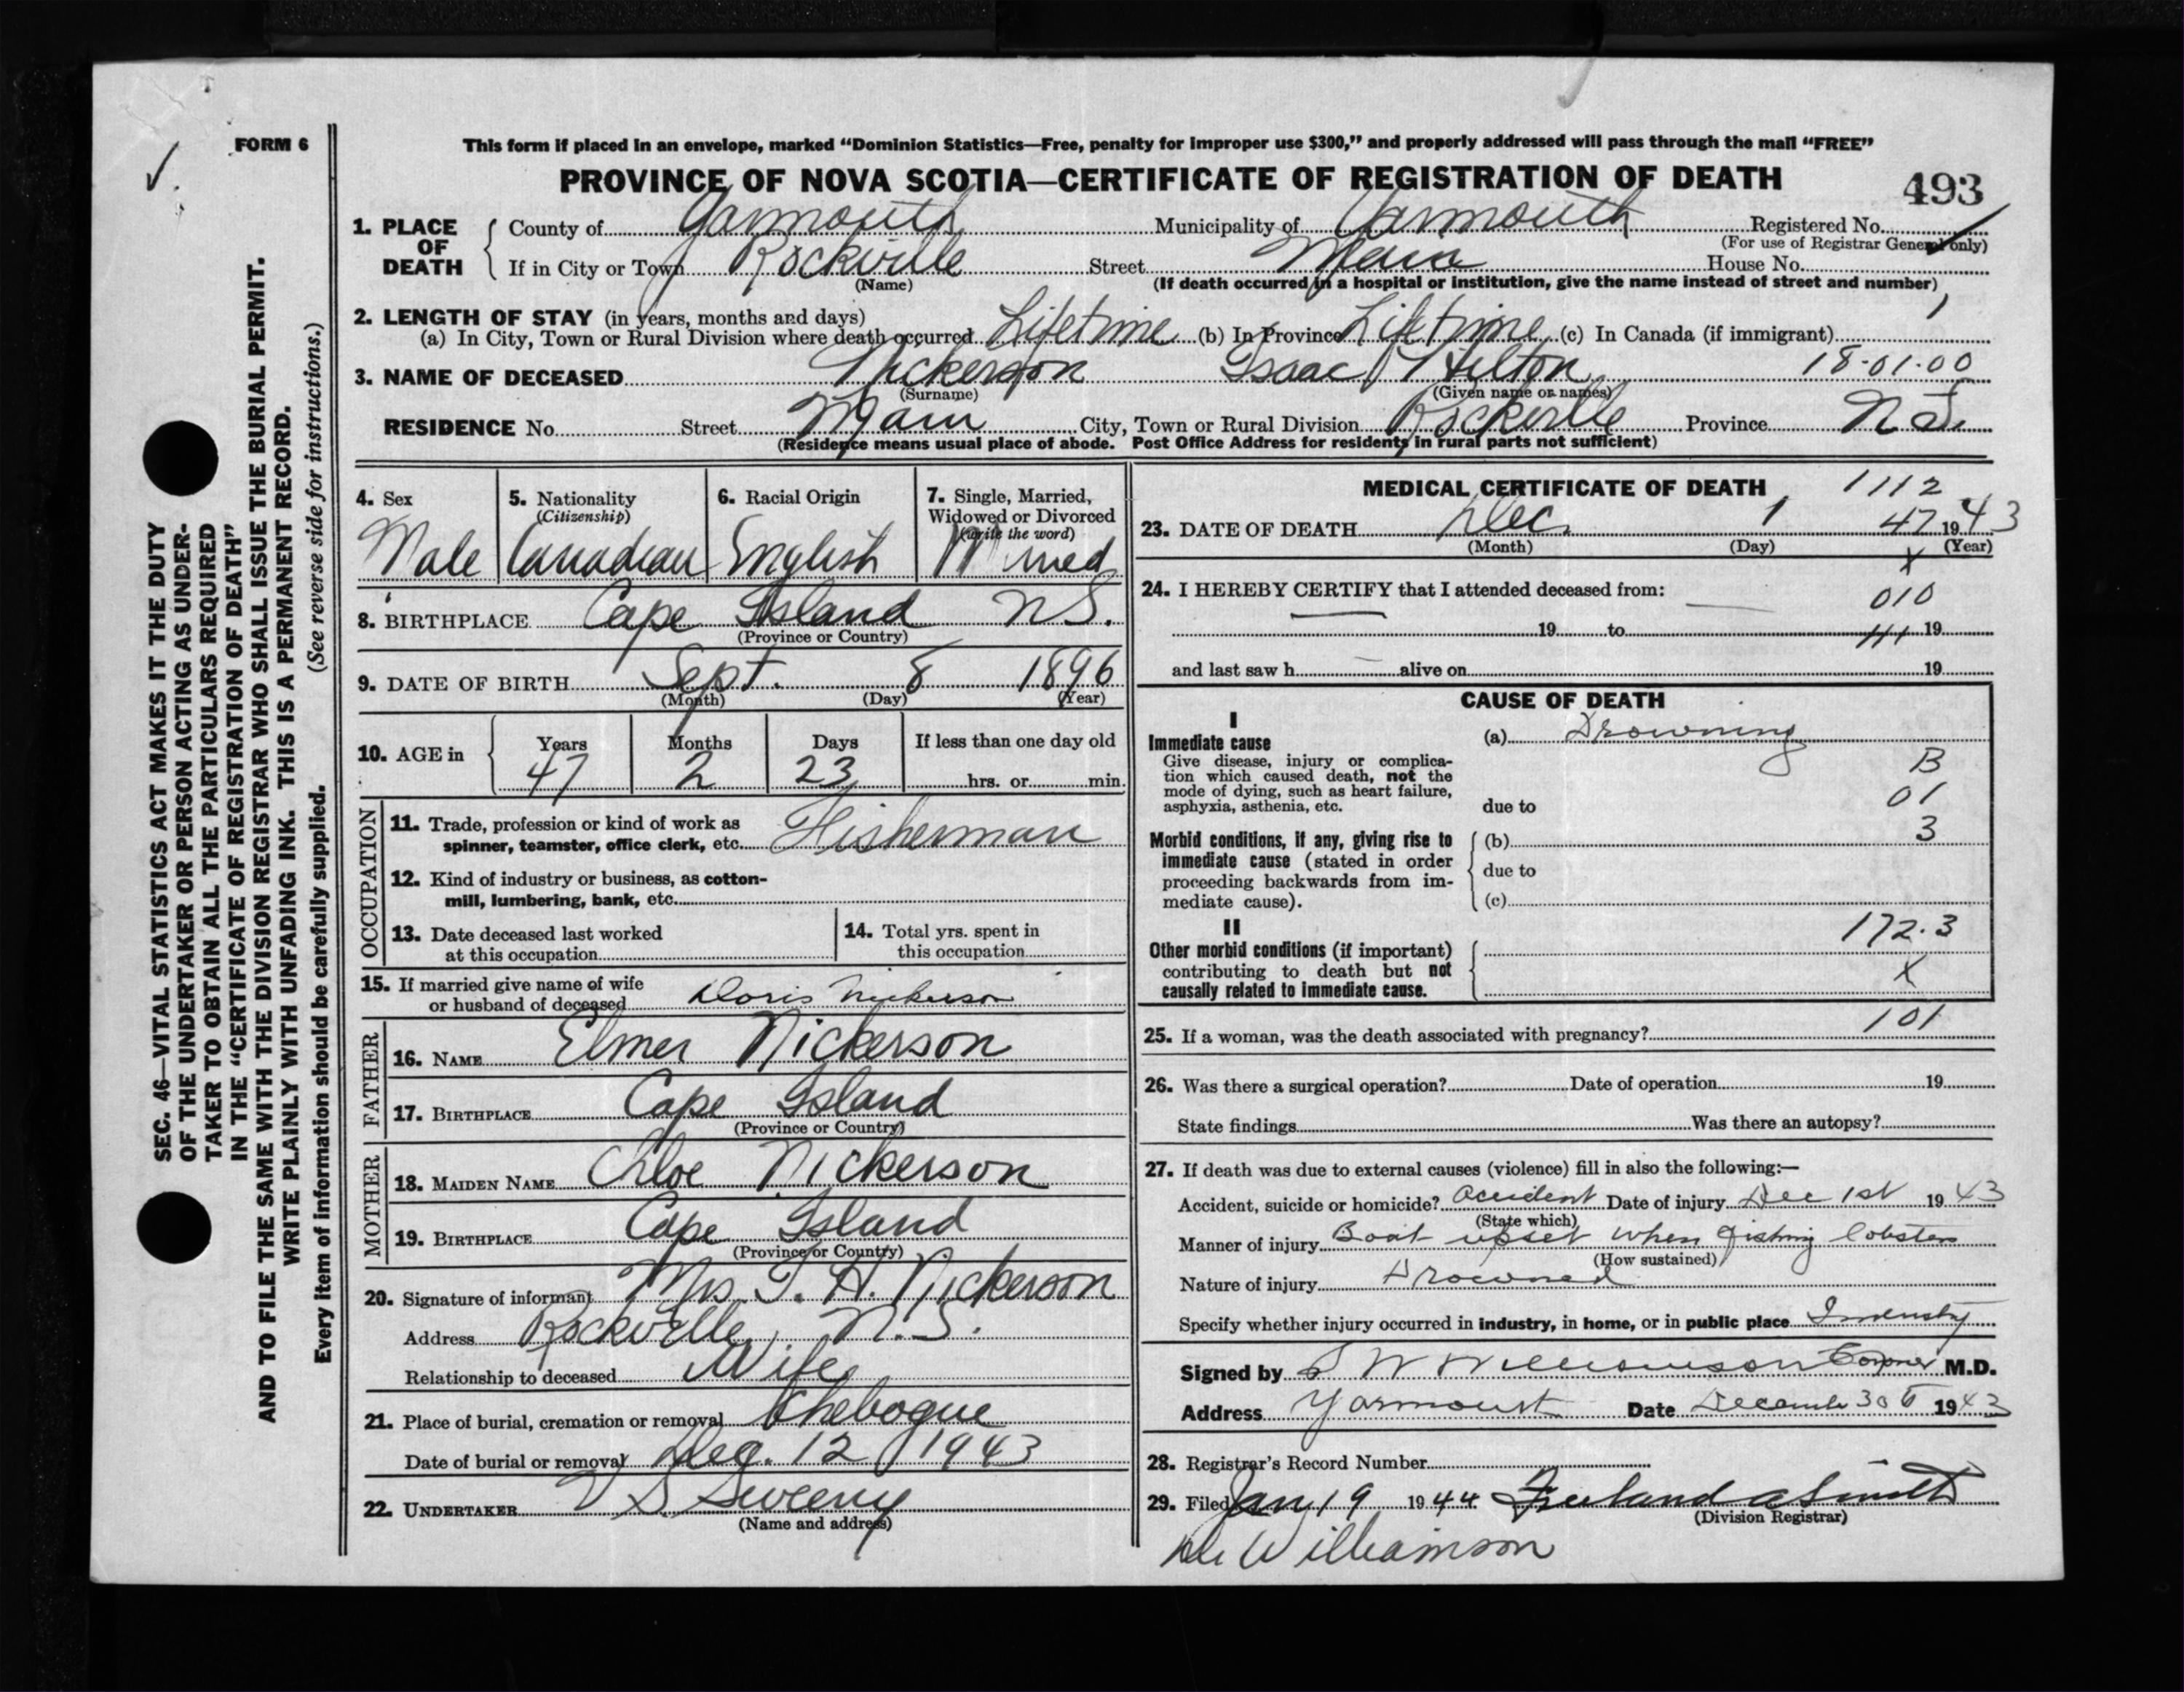 FORM 6
This form if placed in an envelope, marked “Dominion Statistics—Free, penalty for improper use $300,” and properly addressed will pass through the mail “FREE”
PROVINCE OF NOVA SCOTIA—CERTIFICATE OF REGISTRATION OF DEATH
493
1. PLACE OF DEATH
County of Yarmouth Municipality of Yarmouth Registered No.
(For use of Registrar General only)
If in City or Town Rockville Street Main House No.
(Name) (If death occurred in a hospital or institution, give the name instead of street and number)
2. LENGTH OF STAY (in years, months and days)
(a) In City, Town or Rural Division where death occurred Lifetime (b) In Province Lifetime (c) In Canada (if immigrant)
3. NAME OF DECEASED Nickerson Isaac Hilton 18-01-00
(Surname) (Given name or names)
RESIDENCE No. Street Main City, Town or Rural Division Rockville Province N S.
(Residence means usual place of abode. Post Office Address for residents in rural parts not sufficient)
4. Sex
Male
5. Nationality
(Citizenship)
Canadian
6. Racial Origin
English
7. Single, Married,
Widowed or Divorced
(write the word)
8. BIRTHPLACE Cape Island N S.
(Province or Country)
9. DATE OF BIRTH Sept. 8 1896
(Month) (Day) (Year)
10. AGE in
Years Months Days If less than one day old
47 2 23 hrs. or min.
OCCUPATION
11. Trade, profession or kind of work as
spinner, teamster, office clerk, etc. Fisherman
12. Kind of industry or business, as cotton-
mill, lumbering, bank, etc.
13. Date deceased last worked
at this occupation
14. Total yrs. spent in
this occupation
15. If married give name of wife
or husband of deceased Doris Nickerson
FATHER
16. NAME Elmer Nickerson
17. BIRTHPLACE Cape Island
(Province or Country)
MOTHER
18. MAIDEN NAME Chloe Nickerson
19. BIRTHPLACE Cape Island
(Province or Country)
20. Signature of informant Mrs. I. H. Nickerson
Address Rockville, N.S.
Relationship to deceased Wife
21. Place of burial, cremation or removal Chebogue
Date of burial or removal Dec. 12 1943
22. UNDERTAKER V S Sweeny
(Name and address)
MEDICAL CERTIFICATE OF DEATH 1112
23. DATE OF DEATH Dec. 1 47 1943
(Month) (Day) (Year)
X
24. I HEREBY CERTIFY that I attended deceased from:
010
19 to 111 19
and last saw h alive on 19
CAUSE OF DEATH
I
Immediate cause
Give disease, injury or complica-
tion which caused death, not the
mode of dying, such as heart failure,
asphyxia, asthenia, etc.
(a) Drowning
B
01
due to
3
Morbid conditions, if any, giving rise to
immediate cause (stated in order
proceeding backwards from im-
mediate cause).
(b)
due to
(c)
II
172.3
Other morbid conditions (if important)
contributing to death but not
causally related to immediate cause.
X
25. If a woman, was the death associated with pregnancy? 101
26. Was there a surgical operation? Date of operation 19
State findings Was there an autopsy?
27. If death was due to external causes (violence) fill in also the following:—
Accident, suicide or homicide? accident Date of injury Dec 1st 1943
(State which)
Manner of injury Boat upset when fishing lobsters
(How sustained)
Nature of injury Drowned
Specify whether injury occurred in industry, in home, or in public place Industry
Signed by Williamson Coroner M.D.
Address Yarmouth Date December 30 1943
28. Registrar's Record Number
29. Filed Jan 19 1944 Freeland A Smith
(Division Registrar)
Dr Williamson
SEC. 46—VITAL STATISTICS ACT MAKES IT THE DUTY
OF THE UNDERTAKER OR PERSON ACTING AS UNDER-
TAKER TO OBTAIN ALL THE PARTICULARS REQUIRED
IN THE “CERTIFICATE OF REGISTRATION OF DEATH”
AND TO FILE THE SAME WITH THE DIVISION REGISTRAR WHO SHALL ISSUE THE BURIAL PERMIT.
WRITE PLAINLY WITH UNFADING INK. THIS IS A PERMANENT RECORD.
Every item of information should be carefully supplied. (See reverse side for instructions.)